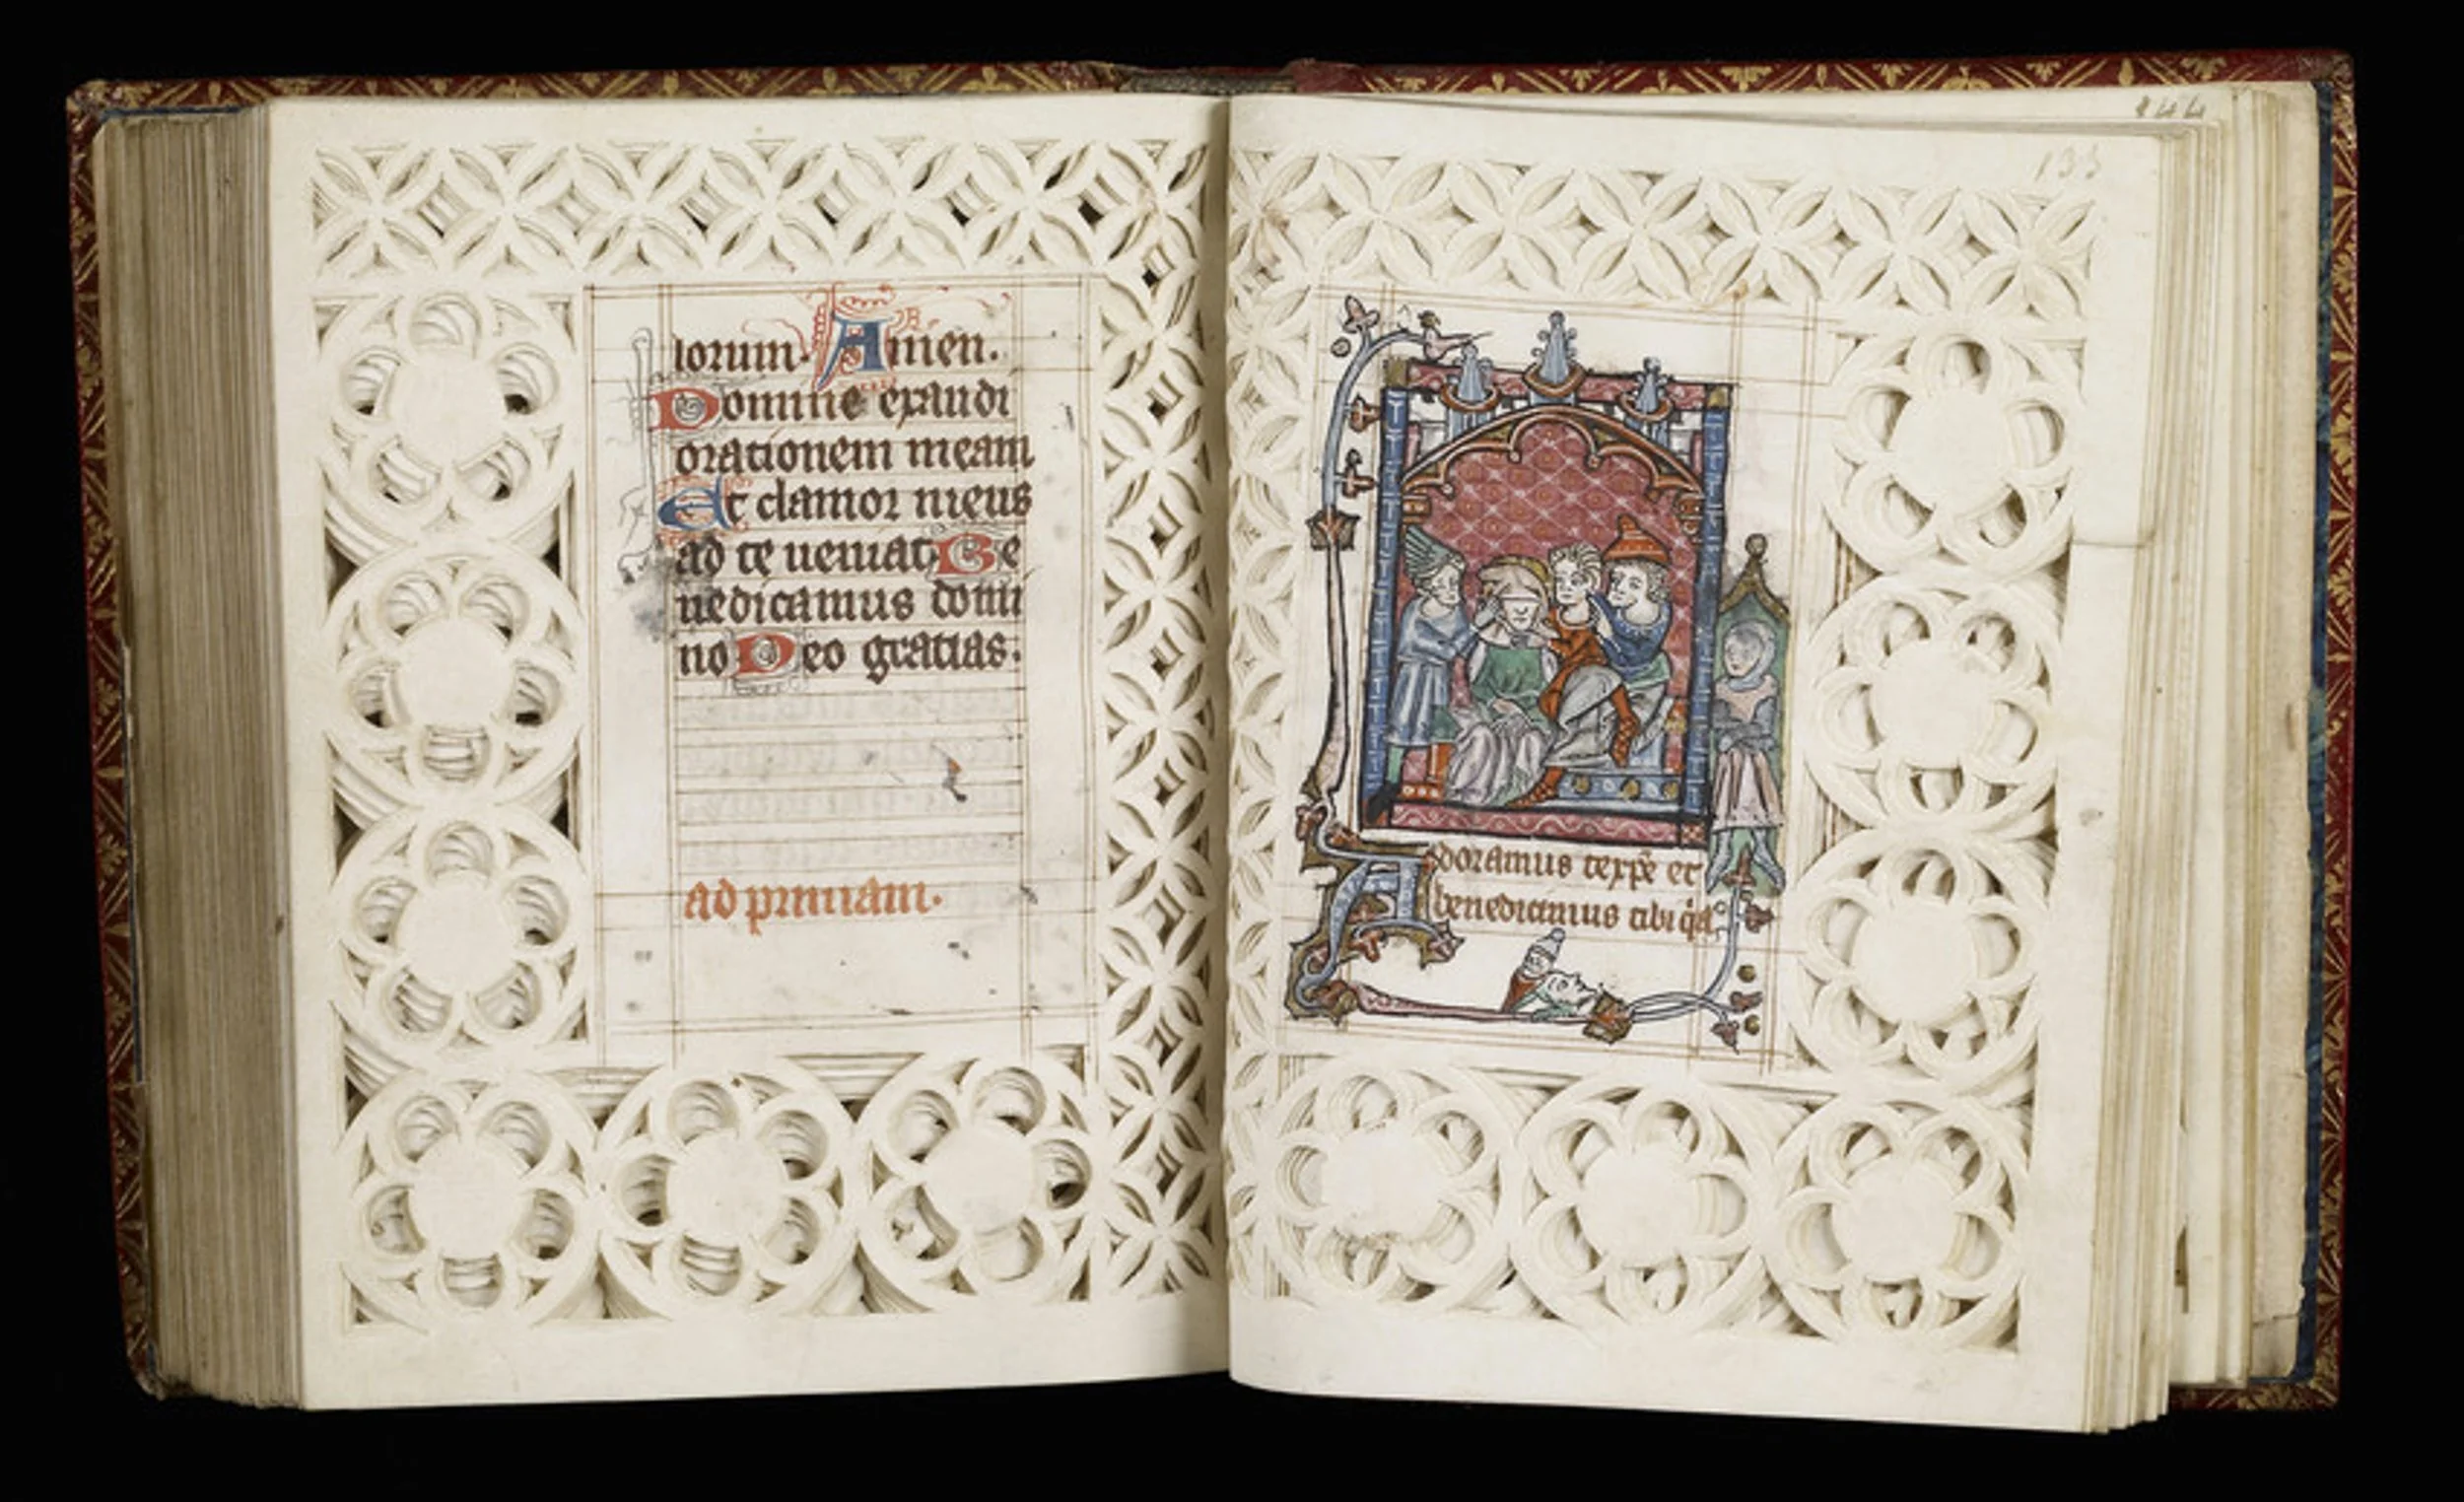 lorum. Amen.
Domine exaudi
orationem meam
Et clamor meus
ad te ueniat Be
nedicamus domi
no Deo gratias.
ad primam.
144
133
Adoramus te xpe et
benedicimus tibi qa